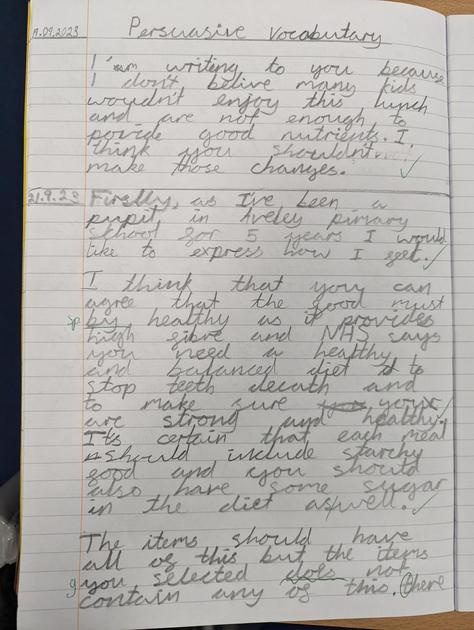 19.09.2023
Persuasive vocabulary
I am writing to you because
I don't belive many kids
wouldn't enjoy this lunch
and are not enough to
povide good nutrients. I
think you shouldn't
make those changes.
21.9.23 Firstly, as I've been a
pupil in Aveley pimary
school for 5 years I would
like to express how I feel.
I think that you can
agree that the good must
sp by healthy as it provides
high fibre and NHS says
you need a healthy
and balanced diet to
stop teeth decath and
to make sure your
are strong and healthy.
Its certain that each meal
should include starchy
good and you should
also have some sugar
in the diet aswell.
The items should have
all of this but the items
g you selected does not
contain any of this. there